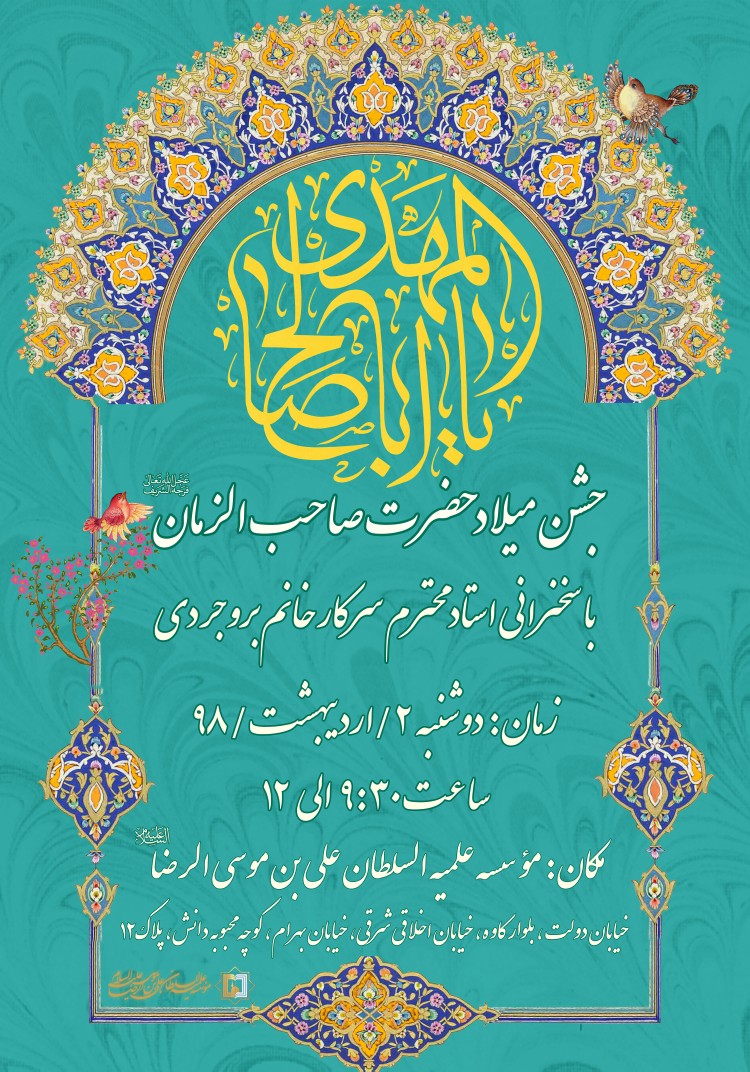 یا اباصالح المهدی
جشن میلاد حضرت صاحب الزمان عجل الله تعالی فرجه الشریف
با سخنرانی استاد محترم سرکار خانم بروجردی
زمان: دوشنبه ۲ / اردیبهشت / ۹۸
ساعت ۹:۳۰ الی ۱۲
مکان: مؤسسه علمیه السلطان علی بن موسی الرضا علیه السلام
خیابان دولت، بلوار کاوه، خیابان اخلاقی شرقی، خیابان بهرام، کوچه محبوبه دانش، پلاک ۱۲